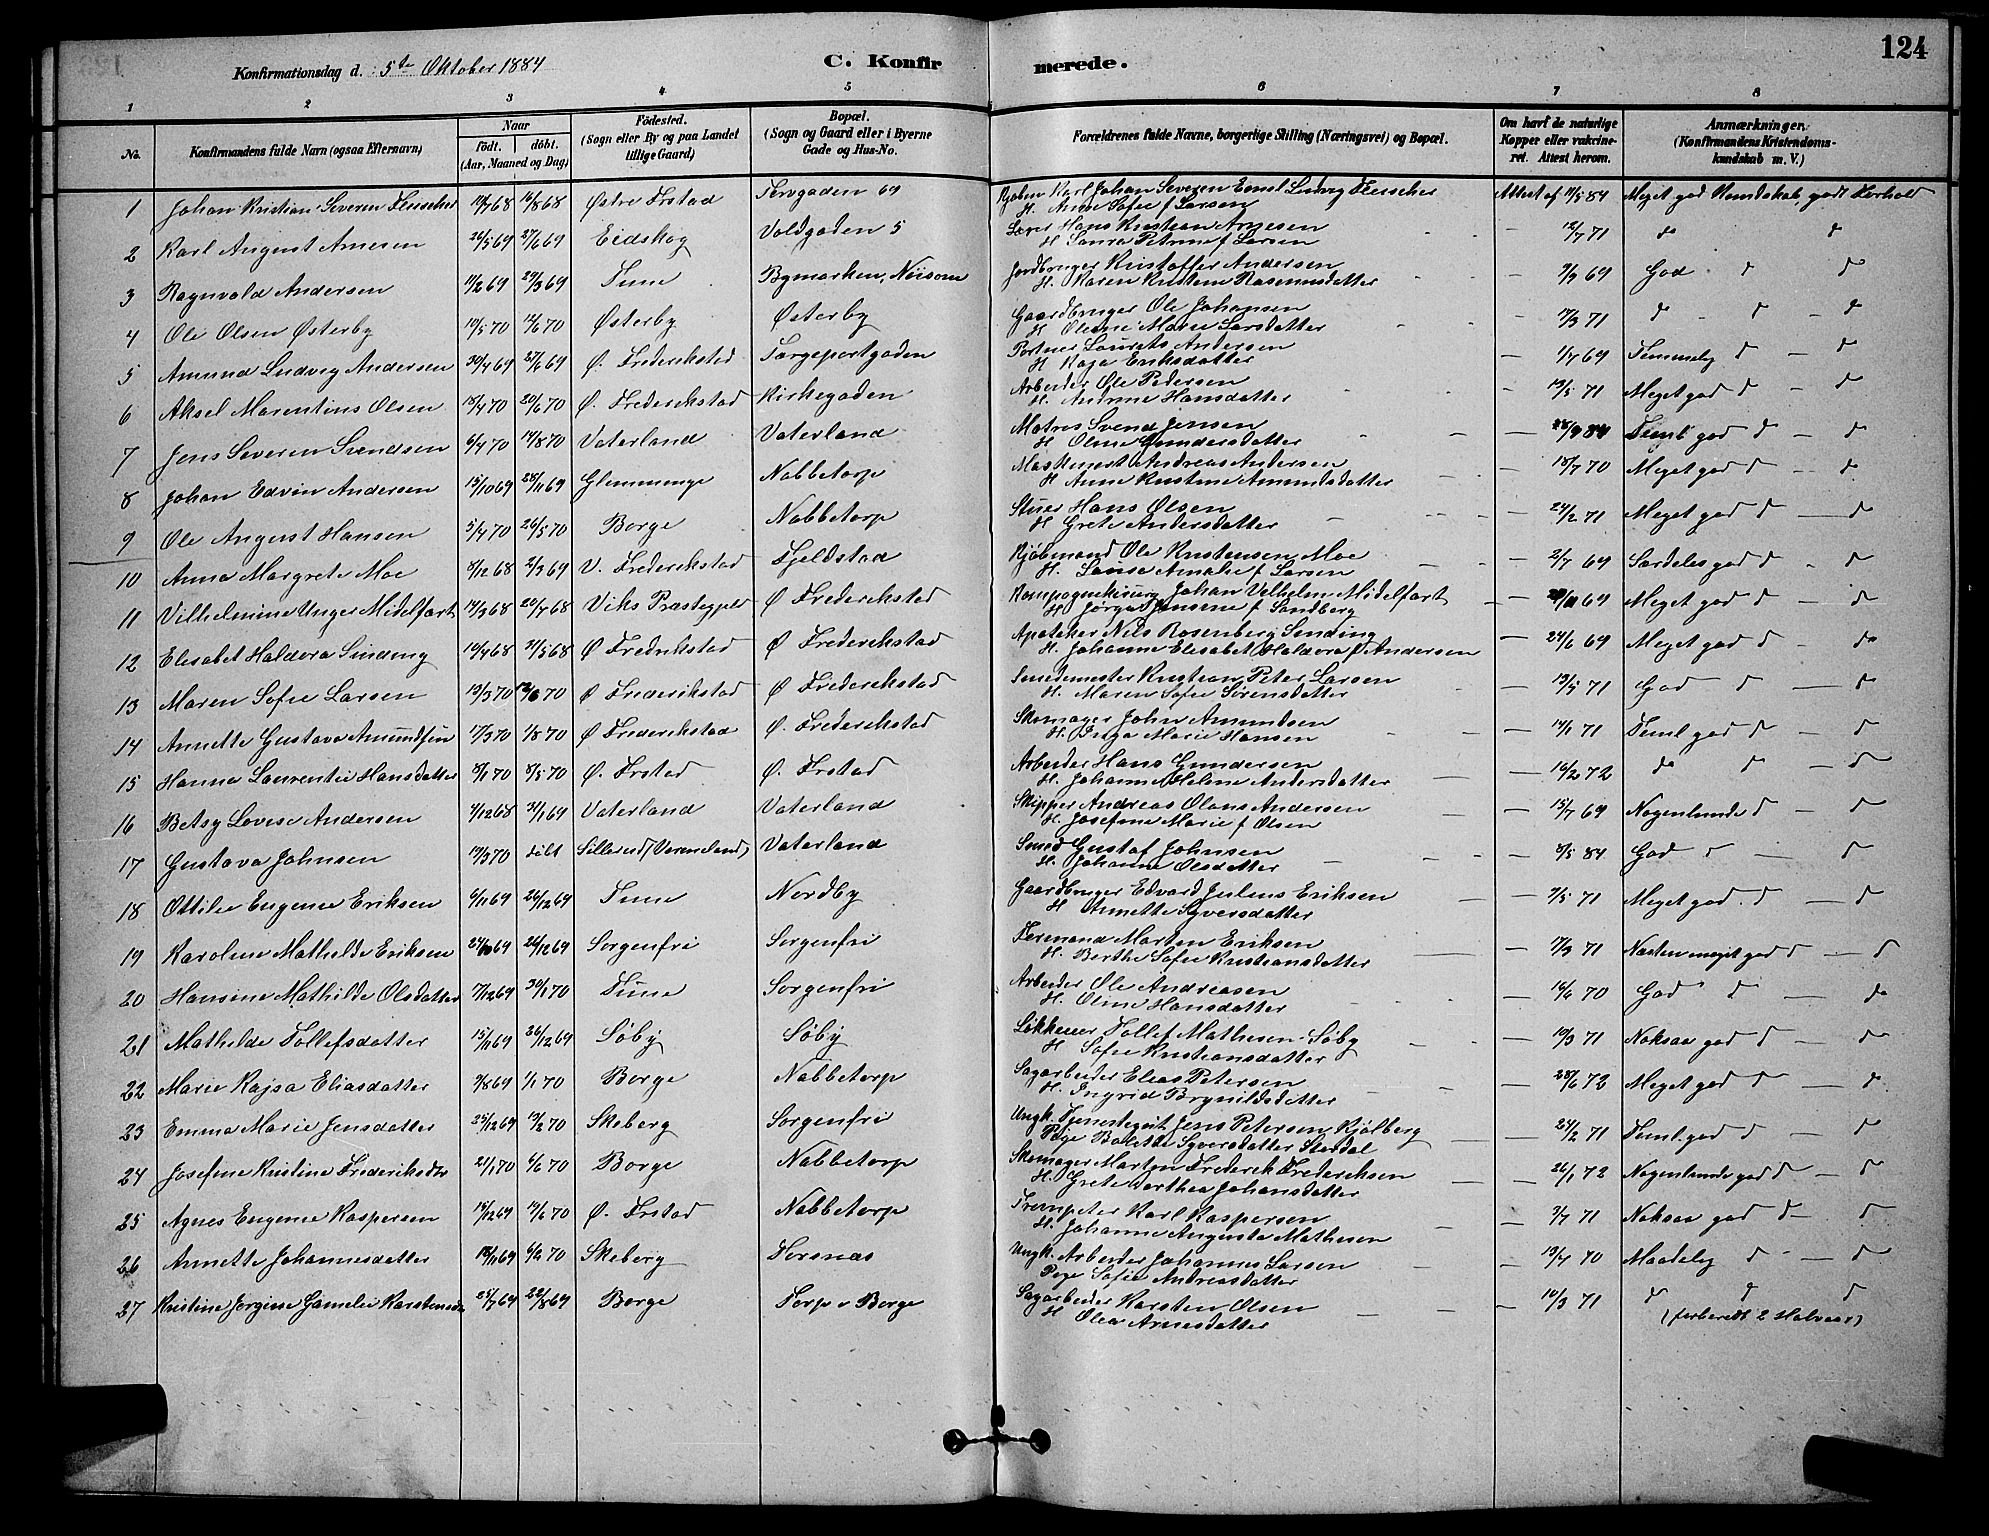 124
Konfirmationsdag d. 5te Oktober 1884
C. Konfirmerede.
1 2 3 4 5 6 7 8
No.
Konfirmandens fulde Navn (ogsaa Efternavn)
Naar
født. døbt.
(Aar, Maaned og Dag)
Fødested.
(Sogn eller By og paa Landet
tillige Gaard)
Bopæl.
(Sogn og Gaard eller i Byerne
Gade og Hus-No.
Forældrenes fulde Navne, borgerlige Stilling (Næringsvei) og Bopæl.
Om havt de naturlige
Kopper eller vakcine-
ret. Attest herom.
Anmærkninger.
(Konfirmandens Kristendoms-
kundskab m. V.)
1 Johan Kristian Severin Fleischer 16/8 68 Østre Frstad Karl Johan Severin Emil Ludvig Fleischer Attest af Meget god Kundskab, godt Forhold
H. Anne Sofie f Larsen
2 Karl August Arnesen 26/5 69 27/6 69 Eidskog Voldgaden 5 Hans Kristian Arnesen 12/7 71 do do
H Laura Petrine f Larsen
3 Ragnvald Andersen 11/2 69 29/3 69 Tune Bymarken, Jordbruger Kristoffer Andersen 9/9 69 God d d
H. Karen Kristine Rasmusdatter
4 Ole Olsen Østerby 10/5 70 12/6 70 Østerby Østerby Gaardbruger Ole Johansen 17/3 71 d d d
H Oline Marie Larsdatter
5 Amund Ludvig Andersen 30/4 69 27/6 69 Ø. Frederikstad Torgeportgaden Portner Laurits Andersen 1/7 69 Temmelig d d
H Kaja Eriksdatter
6 Aksel Marentius Olsen 15/4 70 20/6 70 Ø. Frederikstad Kirkegaden Arbeider Ole Pedersen 13/5 71 Meget god d d
H. Andrine Hansdatter
7 Jens Severin Svendsen 6/4 70 14/8 70 Vaterland Vaterland Matros Svend Jensen 28/9 84 Teml god d d
H Oline Gundersdatter
8 Johan Edvin Andersen 15/10 69 28/11 69 Glemminge Nabbetorp Maskinist Andreas Andersen 15/7 70 Meget god d do
H Anne Kristine Amundsdatter
9 Ole August Hansen 5/4 70 26/5 70 Borge Nabbetorp Stuer Hans Olsen 24/2 71 Meget god d d
H Grete Andersdatter
10 Anna Margrete Moe 8/12 68 2/3 69 V. Frederikstad Fjeldstad Kjøbmand Ole Kristensen Moe 2/7 69 Særdeles god d d
H. Lovise Amalie f Larsen
11 Vilhelmine Unger Midelfart 14/3 68 20/7 68 Viks Præstegjeld Ø Frederikstad Kompagnikirurg Johan Vilhelm Midelfart Meget god d d
H Jørga Jensine f Sandberg
12 Elisabet Haldora Sinding 10/4 68 31/5 68 Ø Fredrikstad Ø Frederikstad Apoteker Nils Rosenberg Sinding 24/6 69 Meget god d do
H. Johanne Elisabet Haldora f Andersen
13 Maren Sofie Larsen 13/3 70 70 Ø Frederikstad Ø Frederikstad Smedemester Kristian Peter Larsen 13/5 71 God d d
H. Maren Sofie Sørensdatter
14 Annette Gustava Amundsen 17/3 70 1/8 70 Ø Frederikstad Ø. Frederikstad Skomager John Amundsen 14/1 71 Teml god d d
H. Inga Marie Hansen
15 Hanna Laurentie Hansdatter 8/1 70 8/5 70 Ø. Frstad Ø. Frstad Arbeider Hans Gundersen 16/2 72 do d d
H. Johanne Helene Andersdatter
16 Betsy Lovise Andersen 4/12 68 31/1 69 Vaterland Vaterland Skipper Andreas Olaus Andersen 15/7 69 Nogenlunde d d
H. Josefine Marie f Olsen
17 Gustava Johnsen 19/3 70 døbt Silleru Vaterland Smed Gustaf Johnsen 8/5 84 God d d
H. Johanne Olsdatter
18 Ottilie Eugenie Eriksen 6/11 69 26/12 69 Tune Nordby Gaardbruger Edvard Julius Eriksen 9/5 71 Meget god d d
H Annette Syversdatter
19 Karoline Mathilde Eriksen 24/10 69 26/12 69 Sorgenfri Sorgenfri Ferimand Morten Eriksen 17/3 71 Næsten meget god d d
H. Berthe Sofie Kristiansdatter
20 Hansine Mathilde Olsdatter 7/12 69 30/1 70 Tune Sorgenfri Arbeider Ole Andreasen 16/6 70 God d do
H. Oline Hansdatter
21 Mathilde Tollefsdatter 15/11 69 26/12 69 Søby Søby Løkkeeier Tollef Mathesen Søby 10/3 71 Noksaa god d d
H Sofie Kristiansdatter
22 Marie Kajsa Eliasdatter 9/8 69 1/1 70 Borge Nabbetorp Sagarbeider Elias Petersen 28/6 72 Meget god d d
H. Ingrid Brynildsdatter
23 Emma Marie Jensdatter 25/12 69 13/2 70 Skeberg Sorgenfri Ungk. Tjenestegut Jens Petersen Kjølberg 24/2 71 Teml. god d d
Pige Bolette Syversdatter Stordal
24 Josefine Kristine Frederiksdtr 21/1 70 6/6 70 Borge Nabbetorp Skomager Morten Frederik Frederiksen 26/1 72 Nogenlunde god d d
H. Grete Dorthea Johansdatter
25 Agnes Eugenie Kaspersen 15/12 69 19/6 70 Ø. Frstad Nabbetorp Trompeter Karl Kaspersen 3/7 71 Noksaa god d d
H. Johanne Auguste Mathisen
26 Annette Johannesdatter 18/11 69 6/2 70 Skeberg Torsnæs Ungk. Arbeider Johannes Larsen 19/4 70 Maadelig d d
Pige Sofie Andreasdatter
27 Kristine Jørgine Gamelie Karstensdr 25/7 69 22/8 69 Borge Torp i Borge Sagarbeider Karsten Olsen 10/3 71 d d d
H Olea Arnesdatter (forberedt 2 Halvaar)